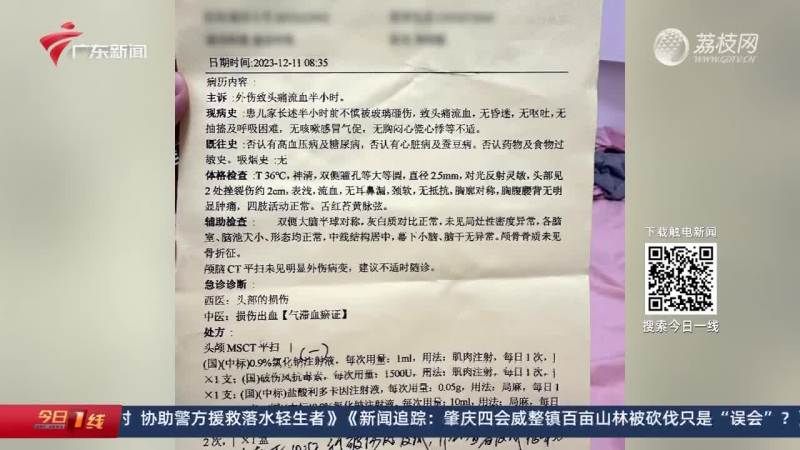 广东新闻
荔枝网
www.GDTV.cn
日期时间:2023-12-11 08:35
病历内容:
主诉:外伤致头痛流血半小时。
现病史:患儿家长述半小时前不慎被玻璃砸伤,致头痛流血,无昏迷,无呕吐,无
抽搐及呼吸困难,无咳嗽感冒气促,无胸闷心慌心悸等不适。
既往史:否认有高血压病及糖尿病,否认有心脏病及蚕豆病。否认药物及食物过
敏史。吸烟史:无
体格检查:T 36℃,神清,双侧瞳孔等大等圆,直径2.5mm,对光反射灵敏,头部见
2处挫裂伤约2cm,表浅,流血,无耳鼻漏,颈软,无抵抗,胸廓对称,胸腹腰背无明
显肿痛,四肢活动正常。舌红苔黄脉弦。
辅助检查: 双侧大脑半球对称,灰白质对比正常,未见局灶性密度异常,各脑
室、脑池大小、形态均正常,中线结构居中,幕下小脑、脑干无异常。颅骨骨质未见
骨折征。
颅脑CT平扫未见明显外伤病变,建议不适时随诊。
急诊诊断:
西医:头部的损伤
中医:损伤出血【气滞血瘀证】
处方:
头颅MSCT平扫
(国)(中标)0.9%氯化钠注射液,每次用量:1ml,用法:肌肉注射,每日1次,
×1支;(国)破伤风抗毒素,每次用量:1500U,用法:肌肉注射,每日1次,
×1支;(国)(中标)盐酸利多卡因注射液,每次用量:0.05g,用法:局麻,每日1
每次用量:10ml,用法:局麻,每日
下载触电新闻
搜索今日一线
今日1线
协助警方援救落水轻生者》《新闻追踪:肇庆四会威整镇百亩山林被砍伐只是“误会”?